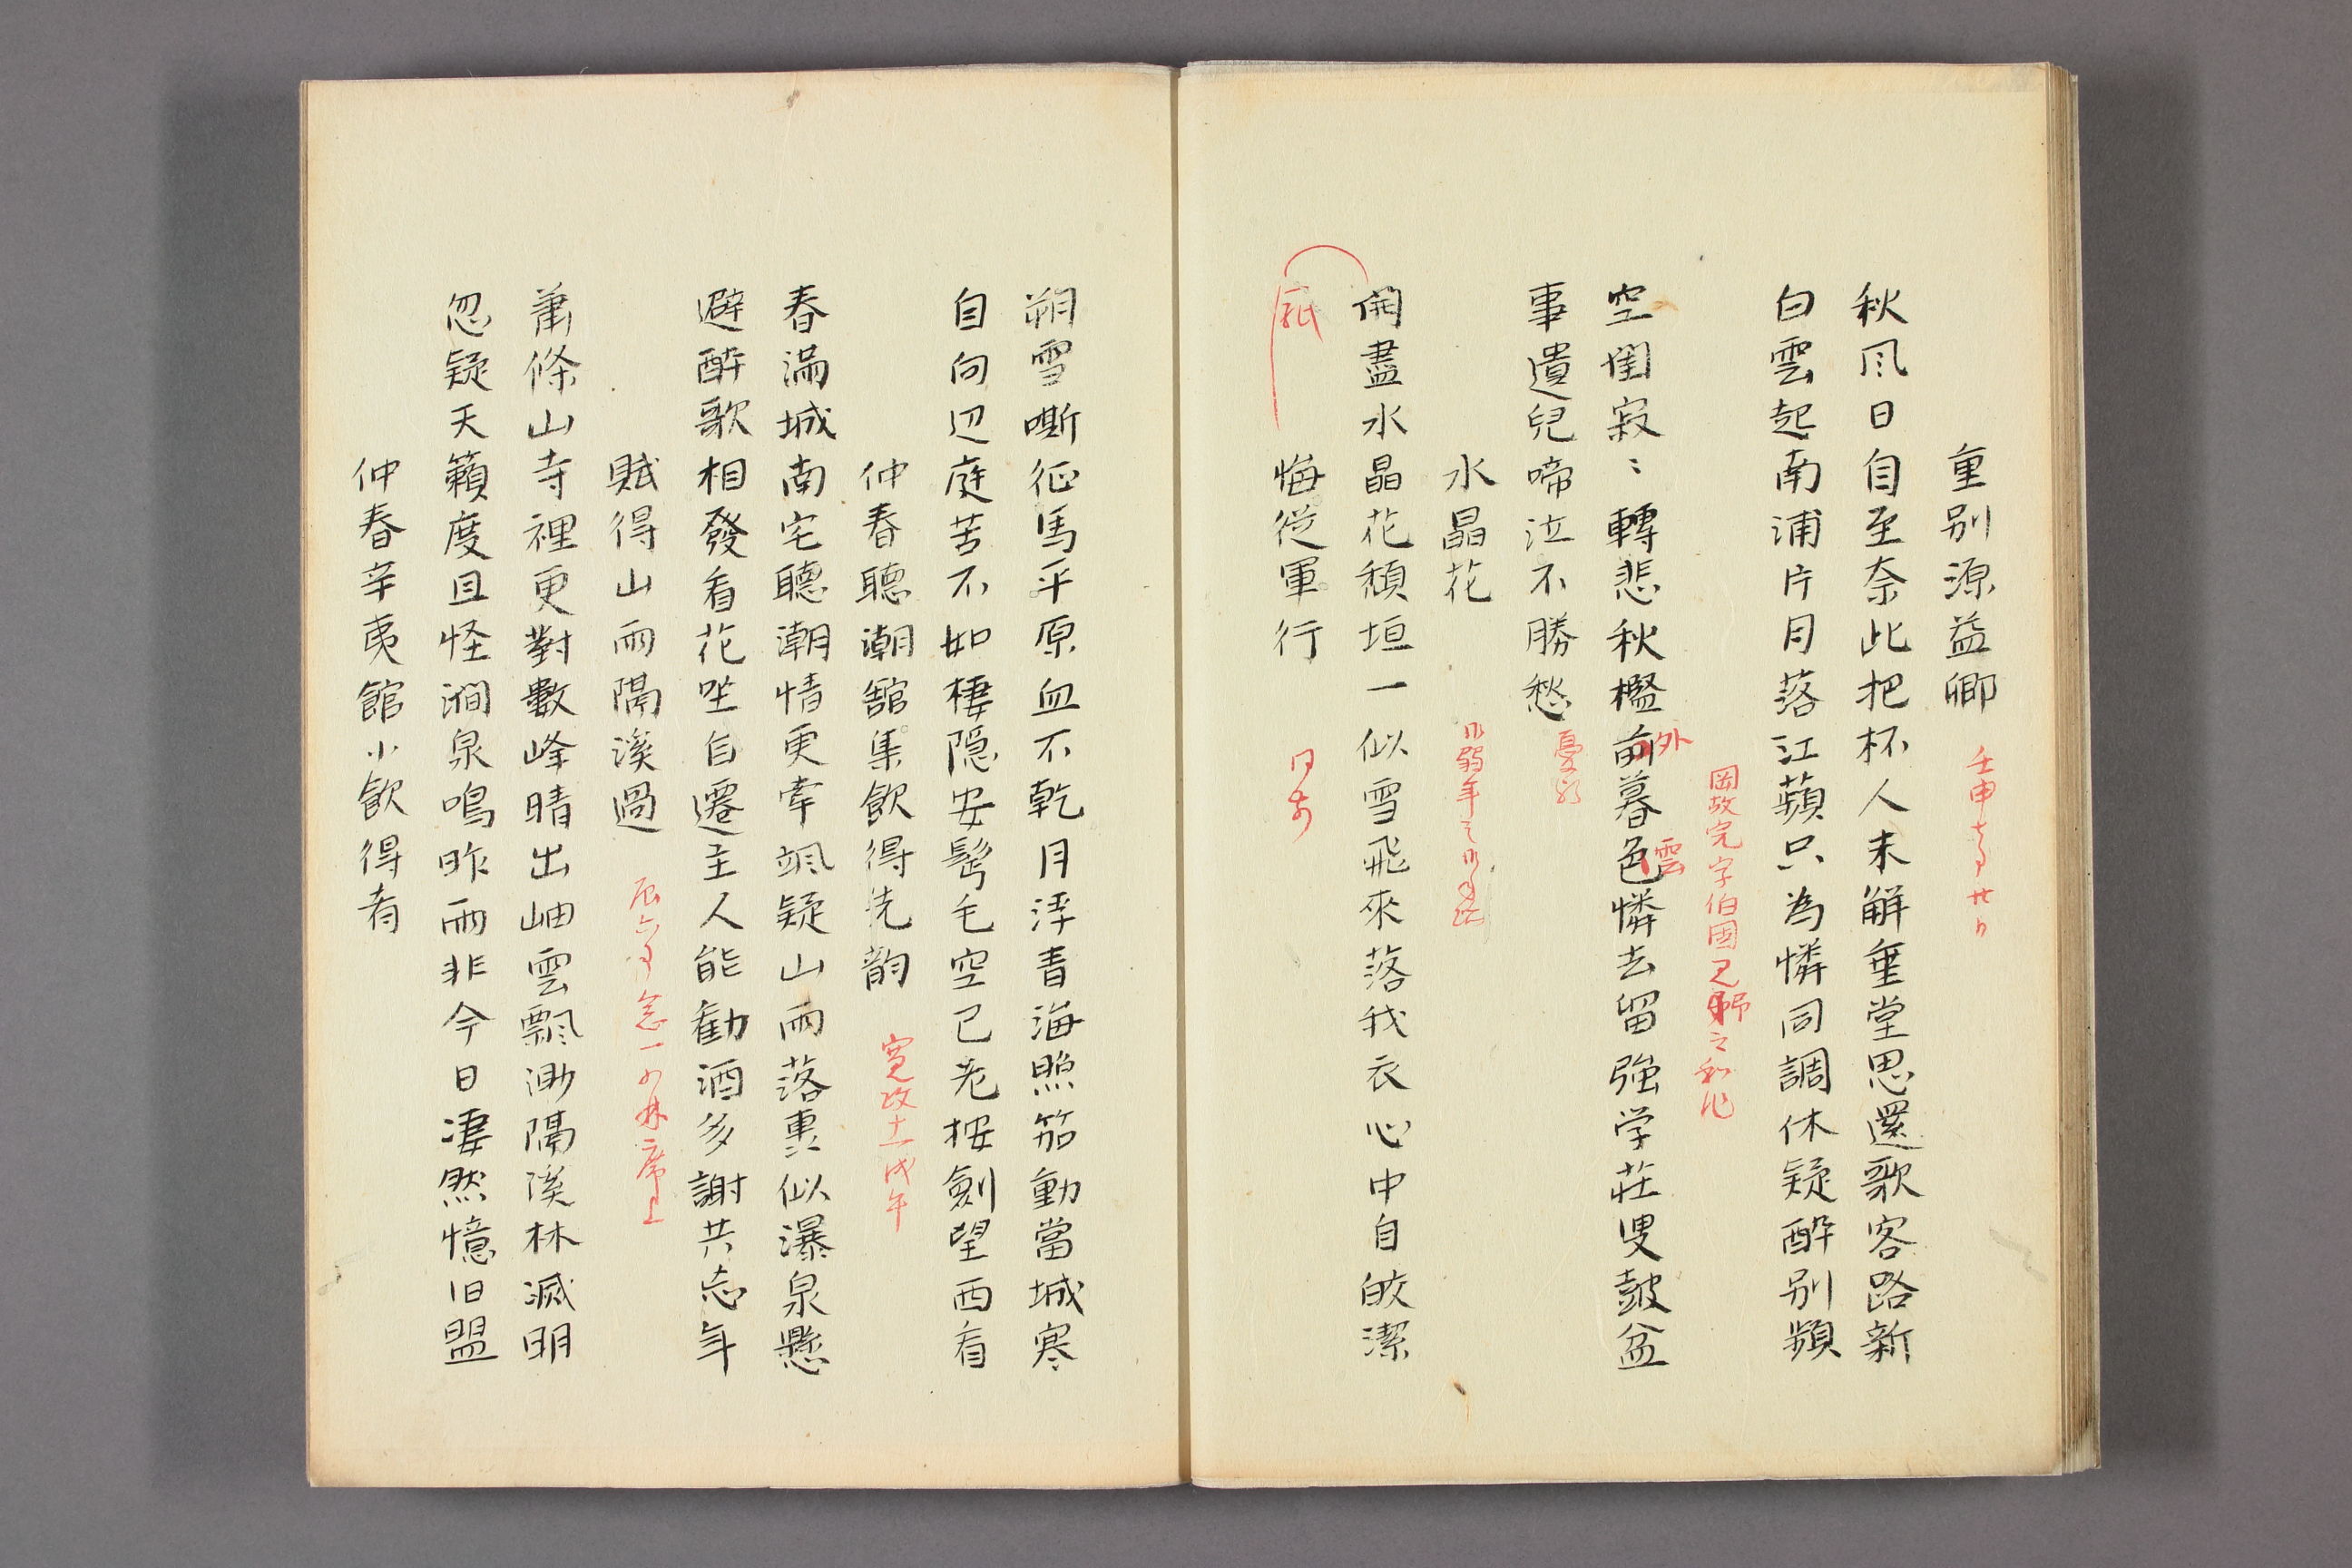 重別源益卿 壬申
秋風日自至奈此把杯人未解垂堂思還歌客路新
白雲起南浦片月落江蘋只為憐同調休疑酔別頻
岡故完字伯固 之和
空閨寂〻轉悲秋檻前暮色憐去留強学荘叟鼓盆
外
雲
事遺兒啼泣不勝愁
水晶花
開盡水晶花頽垣一似雪飛來落我衣心中自皎潔
悔從軍行 同前
朔雪嘶征馬平原血不乾月浮青海照笳動當城寒
自向辺庭苦不如棲隠安髩毛空已老按劍望西看
仲春聽潮舘集飲得先韵 寛政十一戊午
春満城南宅聽潮情更牽颯疑山雨落惠似瀑泉懸
避酔歌相發看花坐自遷主人能勸酒多謝共忘年
賦得山雨隔溪過 席上
蕭條山寺裡更對數峰晴出岫雲飄渺隔溪林滅明
忽疑天籟度且怪澗泉鳴昨雨非今日凄然憶旧盟
仲春辛夷館小飲得肴